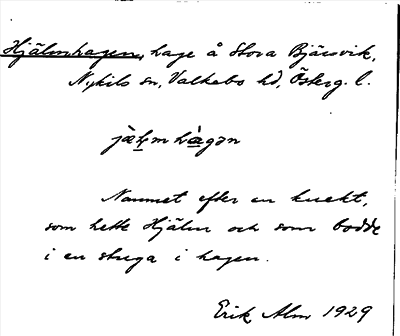 Hjälmhagen, hage å Stora Bjärsvik,
Nykils sn, Valkebo hd, Österg. l.
jä̀ḻmhà̱gən
Namnet efter en knekt,
som hette Hjälm och som bodde
i en stuga i hagen.
Erik Alm 1929